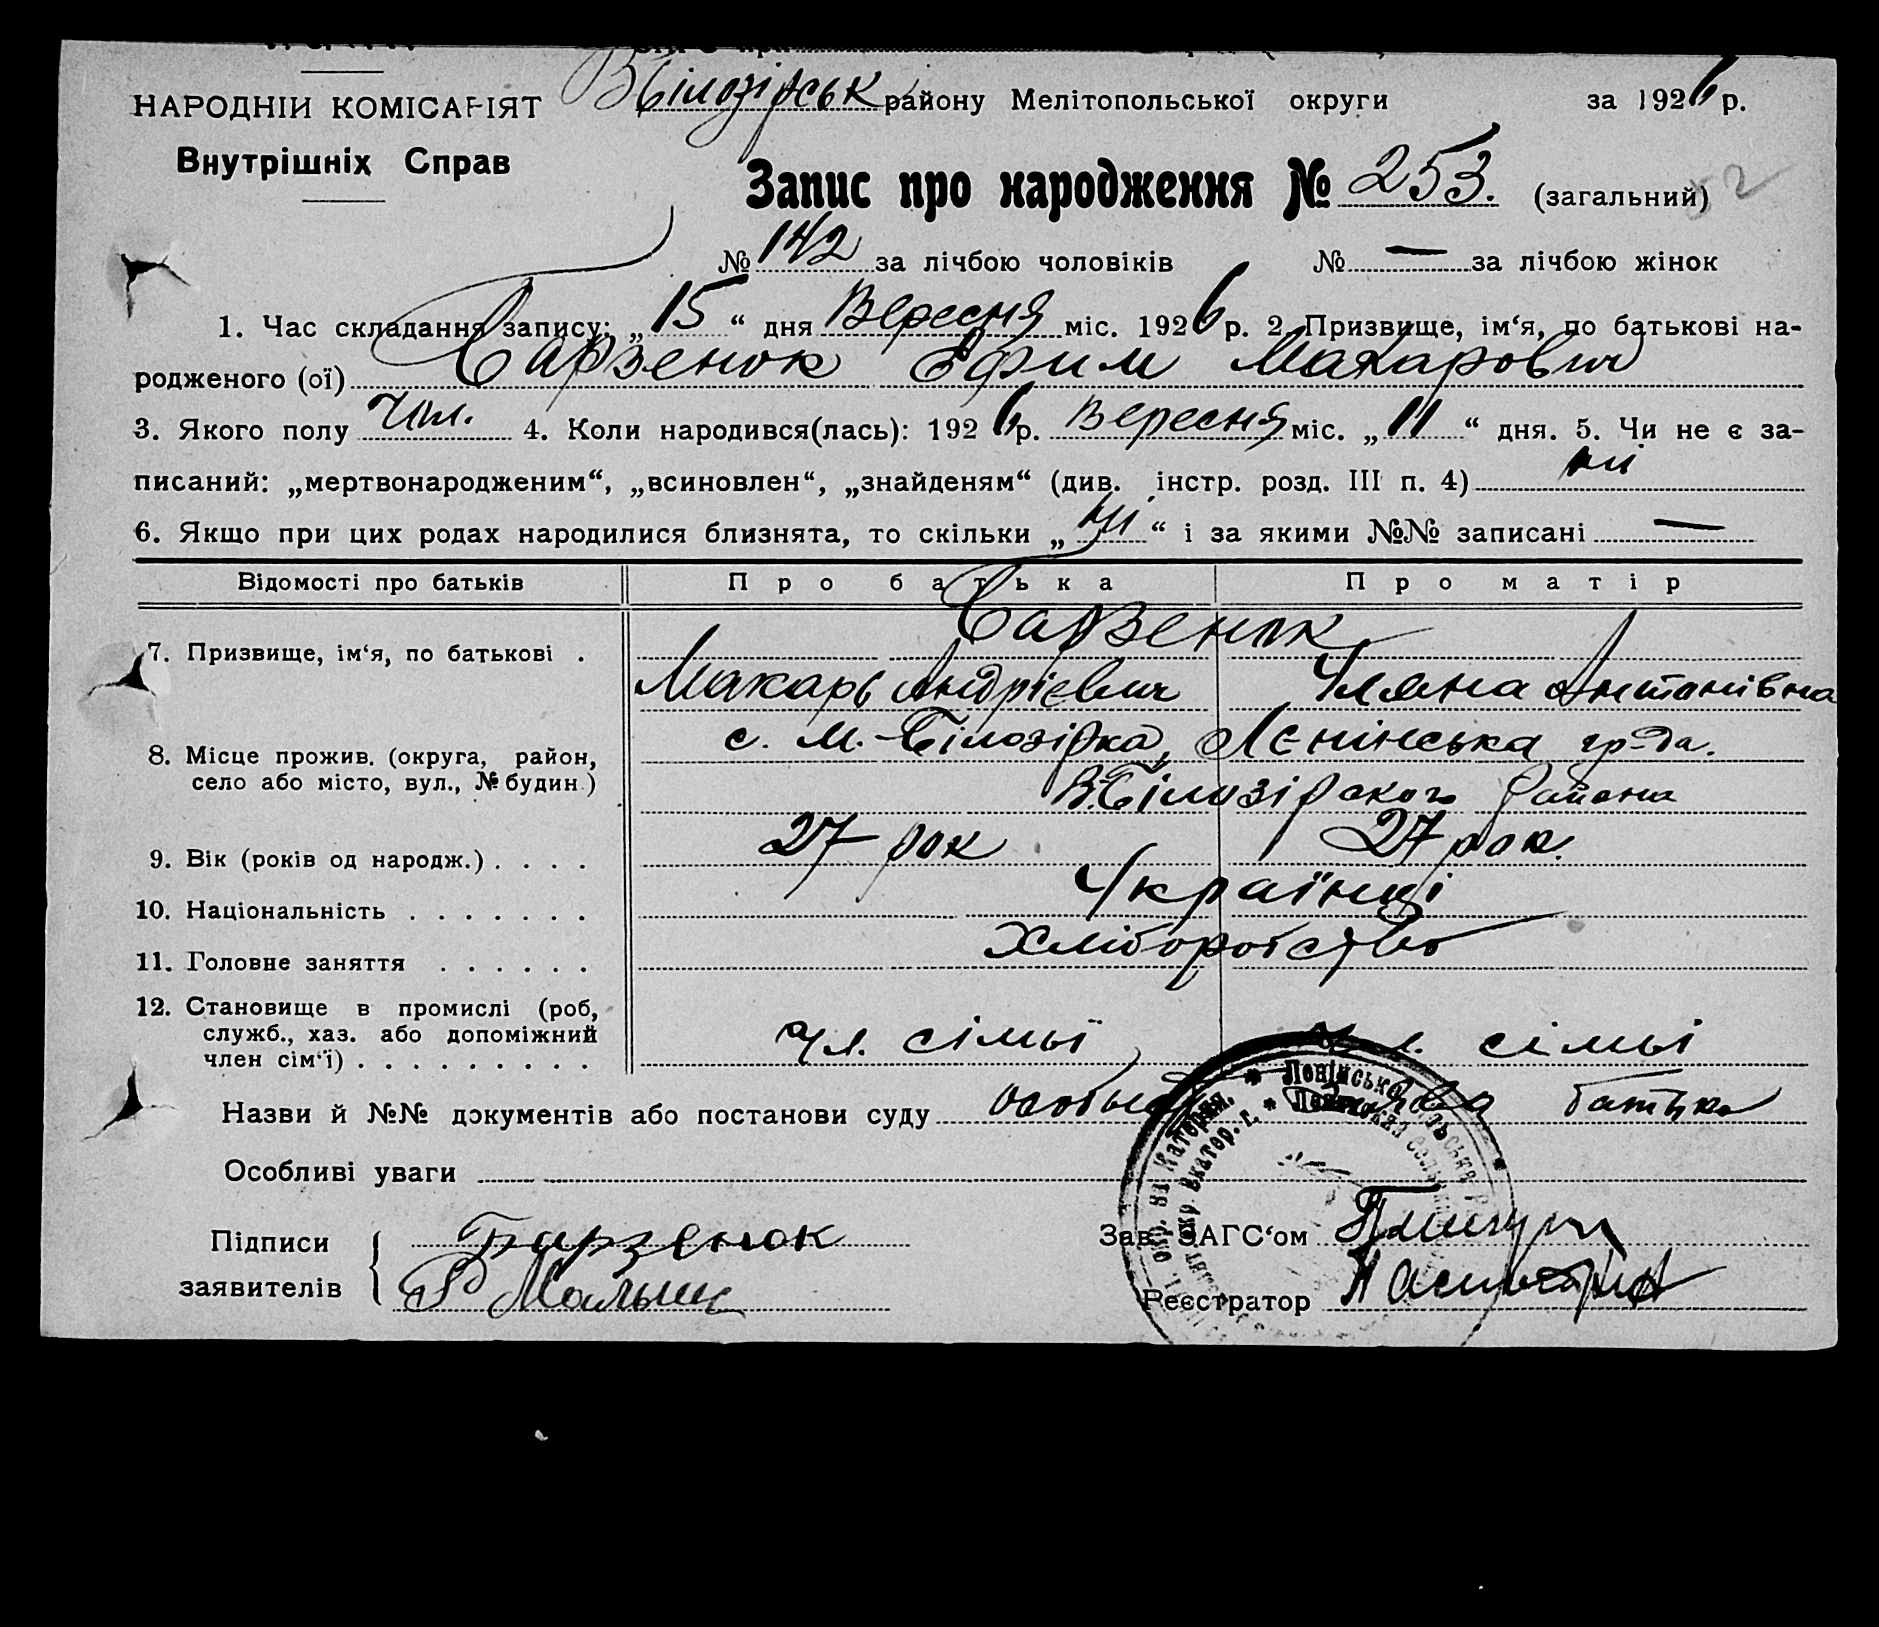 НАРОДНІЙ КОМІСАРІЯТ
Внутрішніх Справ
ВБілозірськ району Мелітопольської округи за 1926 р.
Запис про народження № 253. (загальний)
№ 142 за лічбою чоловіків № — за лічбою жінок
1. Час складання запису: „15“ дня Вересня міс. 1926 р. 2. Призвище, ім‘я, по батькові на-
родженого (ої) Барзенок Ефим Макарович
3. Якого полу Чол. 4. Коли народився(лась): 1926 р. Вересня міс. „11“ дня. 5. Чи не є за-
писаний: „мертвонародженим“, „всиновлен“, „знайденям“ (див. інстр. розд. III п. 4) ні
6. Якщо при цих родах народилися близнята, то скільки „ні“ і за якими №№ записані —
Відомості про батьків Про батька Про матір
Барзенок
7. Призвище, ім‘я, по батькові . Макарь Андрієвич Уляна Антонівна
8. Місце прожив. (округа, район, с. М.-Білозірка, Ленінська гр-да.
село або місто, вул., № будин.) В.-Білозірского района
9. Вік (років од народж.) . . . . 27 рок 27 рок.
10. Національність . . . . . . . Українці
11. Головне заняття . . . . . . Хліборобство
12. Становище в промислі (роб,
служб., хаз. або допоміжний
член сім‘ї) . . . . . . . . . чл. сімьї чл. сімьі
Назви й №№ документів або постанови суду батька
Особливі уваги
Підписи Барзенок Зав. ЗАГС‘ом
заявителів Реєстратор